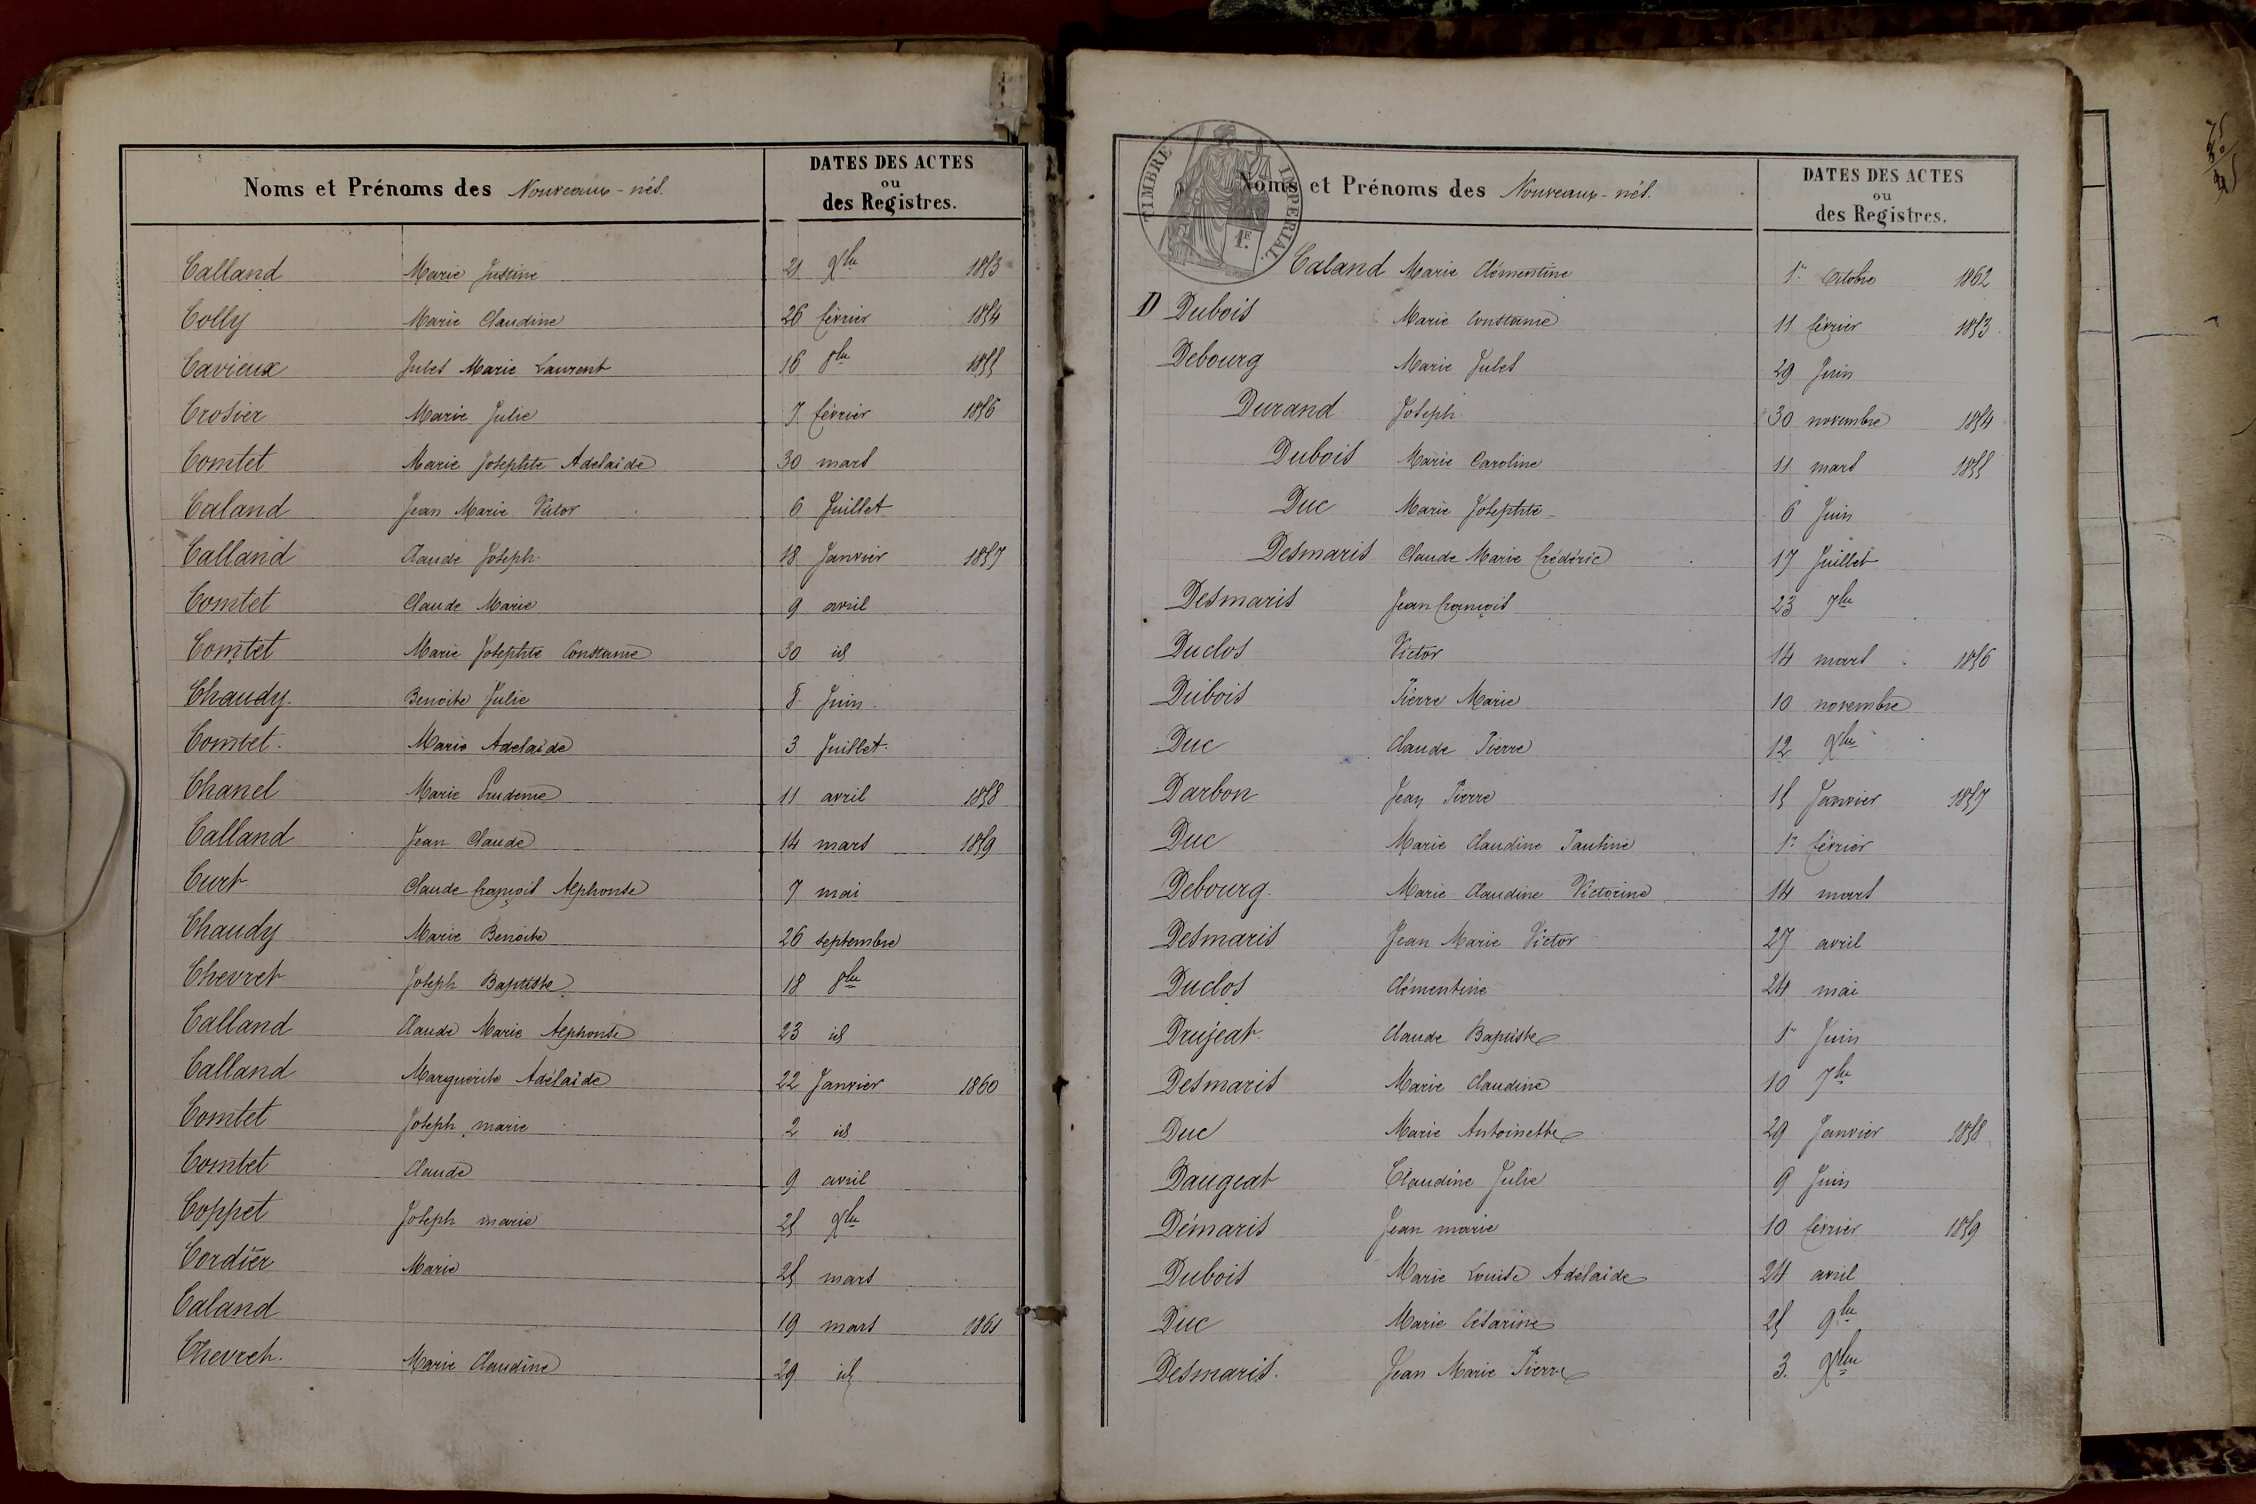 Noms et Prénoms des Nouveaux-nés.
DATES DES ACTES
ou
des Registres.
Calland Marie Justine 21 Xbre 1853
Colly Marie Claudine 26 février 1854
Cavieux Jules Marie Laurent 16 8bre 1855
Crosier Marie Julie 7 février 1856
Comtet Marie Josephte Adelaïde 30 mars
Caland Jean Marie Victor 6 Juillet
Calland Claude Joseph 18 Janvier 1857
Comtet Claude Marie 9 avril
Comtet Marie Josephte Constance 30 id
Chaudy. Benoite Julie 8 Juin
Comtet. Marie Adelaïde 3 Juillet.
Chanel Marie Prudence 11 avril 1858
Calland Jean Claude 14 mars 1859
Curt Claude françois Alphonse 7 mai
Chaudy Marie Benoite 26 septembre
Chevret Joseph Baptiste 18 8bre
Calland Claude Marie Alphonse 23 id
Calland Marguerite Adélaïde 22 Janvier 1860
Comtet Joseph marie 2 id
Comtet Claude 9 avril
Coppet Joseph marie 25 Xbre
Cordier Marie 25 mars
Caland 19 mars 1861
Chevret. Marie Claudine 29 id
TIMBRE IMPERIAL.
1F.
Noms et Prénoms des Nouveaux-nés.
DATES DES ACTES
ou
des Registres.
Caland Marie Clémentine 1er Octobre 1862
D Dubois Marie Constance 11 février 1853
Debourg Marie Jules 29 Juin
Durand Joseph 30 novembre 1854
Dubois Marie Caroline 11 mars 1855
Duc Marie Josephte 6 Juin
Desmaris Claude Marie frédéric 17 Juillet
Desmaris Jean françois 23 7bre
Duclos Victor 14 mars 1856
Dubois Pierre Marie 10 novembre
Duc Claude Pierre 12 Xbre
Darbon Jean Pierre 15 Janvier 1857
Duc Marie Claudine Pauline 1er février
Debourg. Marie Claudine Victorine 14 mars
Desmaris Jean Marie Victor 27 avril
Duclos Clémentine 24 mai
Drujeat Claude Baptiste 1er Juin
Desmaris Marie Claudine 10 7bre
Duc Marie Antoinette 29 Janvier 1858
Daugeat Claudine Julie 9 Juin
Démaris Jean marie 10 février 1859
Dubois Marie Louise Adelaïde 24 avril
Duc Marie Césarine 25 9bre
Desmaris. Jean Marie Pierre 3. Xbre